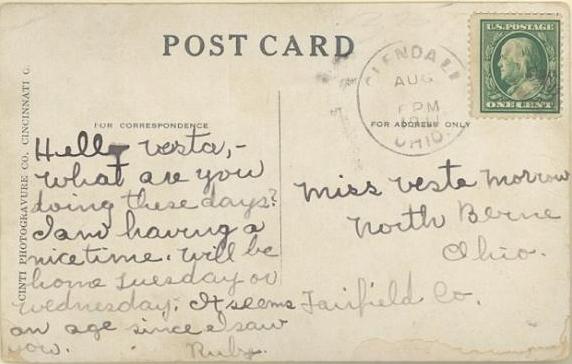 POST CARD
U.S. POSTAGE
ONE CENT
GLENDALE
AUG
PM
OHIO.
CINTI PHOTOGRAVURE CO. CINCINNATI O.
FOR CORRESPONDENCE
FOR ADDRESS ONLY
Hello Vesta,-
What are you
doing these days?
I am having a
nice time. Will be
home Tuesday or
Wednesday. It seems
an age since I saw
you. Ruby.
Miss Vesta Morrow
North Berne
Ohio.
Fairfield Co.